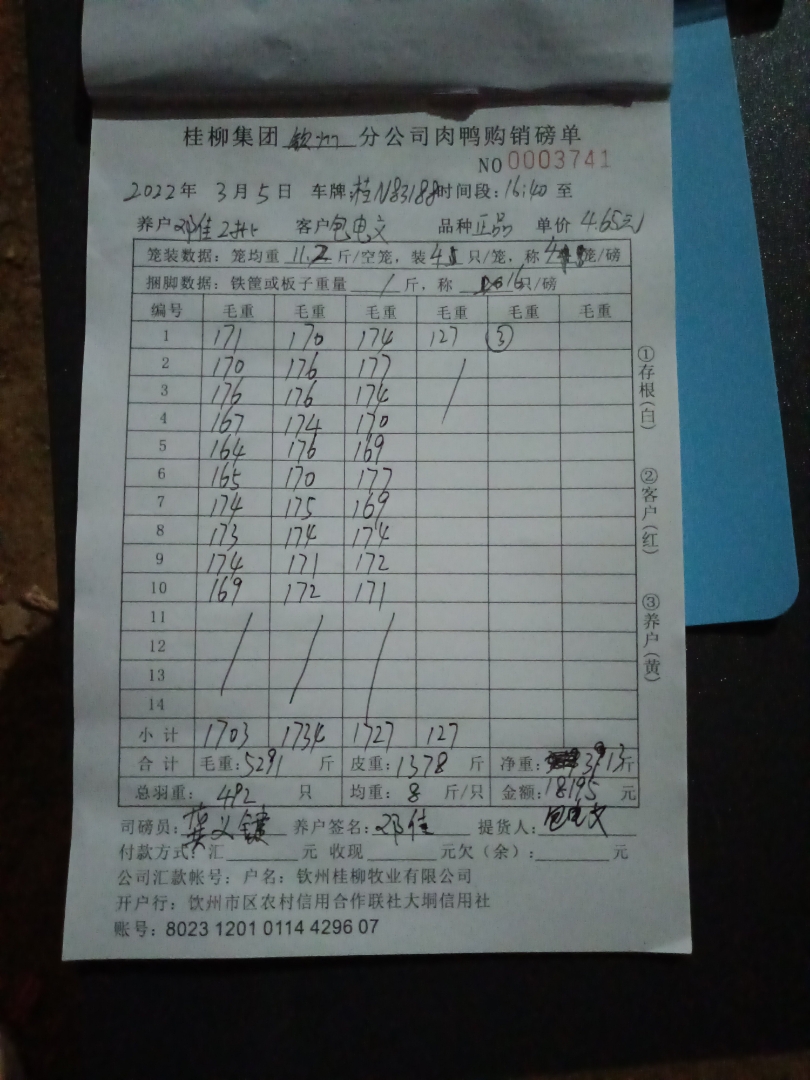 桂柳集团 钦州 分公司肉鸭购销磅单
NO 0003741
2022年 3月5日 车牌:桂N83188 时间段:16:40 至
养户 邓佳 客户 包电文 品种 正品 单价 4.65元
笼装数据: 笼均重 11.2 斤/空笼, 装 4 只/笼, 称 4 笼/磅
捆脚数据: 铁筐或板子重量 / 斤, 称 16 只/磅
编号 毛重 毛重 毛重 毛重 毛重 毛重
1 171 170 174 127 ③
2 170 176 177 /
3 176 176 174
4 167 174 170
5 164 176 169
6 165 170 177
7 174 175 169
8 173 174 174
9 174 171 172
10 169 172 171
11 / / /
12
13
14
小计 1703 1734 1727 127
合计 毛重:5291 斤 皮重:1378 斤 净重:3913斤
总羽重: 492 只 均重: 8 斤/只 金额:18195 元
司磅员: 养户签名: 邓佳 提货人: 包电文
付款方式: 汇 元 收现 元欠(余): 元
公司汇款帐号: 户名: 钦州桂柳牧业有限公司
开户行: 钦州市区农村信用合作联社大垌信用社
账号: 8023 1201 0114 4296 07
①存根(白)
②客户(红)
③养户(黄)